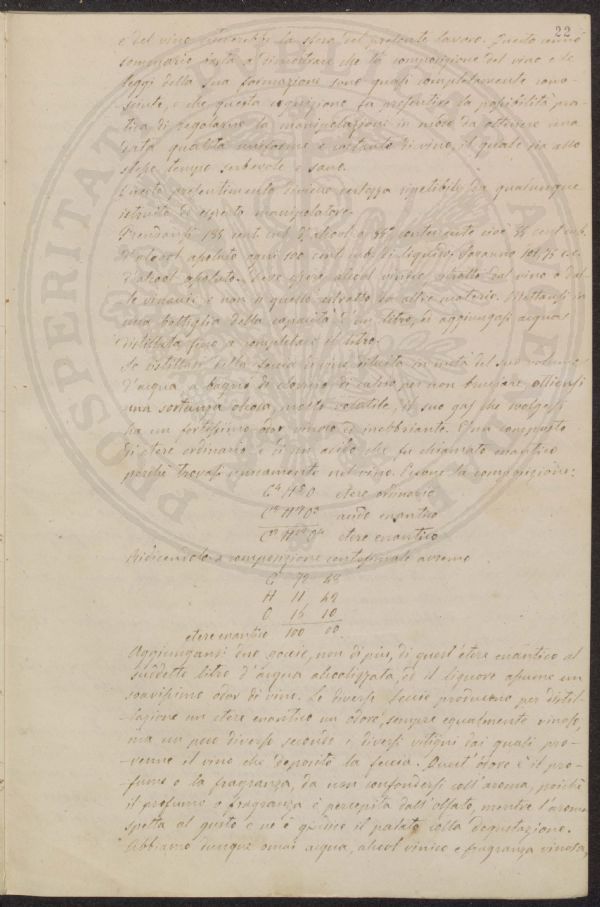 22
e del vino la sfera del presente lavoro. Questo cenno
sommario basta a dimostrare che la composizione del vino e le
leggi della sua formazione sono quasi completamente cono-
sciute, e che questa cognizione fa presentire la possibilità pra-
tica di regolarne la manipolazioni in modo da ottenere una
data qualità uniforme e costante di vino, il quale sia allo
stesso tempo serbevole e sano.
Questo presentimento diviene certezza qualunque
di esperto manipolatore.
Prendansi 135 cent. cub. d'alcool a 85° contenente cioè 85 cent. cub.
d'alcool assoluto ogni 100 cent. cub. di liquido; saranno 114,75 c.c.
d'alcool assoluto. Deve essere alcool vinico, estratto dal vino o dal-
le vinacce e non quello estratto da altre materie. Mettansi in
una bottiglia della capacità d'un litro, ed aggiungasi acqua
distillata fino a completare il litro.
Se distillasi della feccia di vino diluita in metà del suo volume
d'acqua, a bagno di cloruro di calcio per non bruciare, ottiensi
una sostanza oleosa, molto volatile, il suo gas che svolgesi
ha un fortissimo odor vinoso ed inebbriante. È un composto
di etere ordinario e di un acido che fu chiamato enantico
perchè trovasi unicamente nel vino. Eccone la composizione:
C⁴ H⁵ O etere ordinario
acido enantico
etere enantico
Riducendolo a composizione centesimale avremo
C 72 48
H 11 42
O 15 10
etere enantico 100 00.
Aggiungansi due goccie, non di più, di quest'etere enantico al
suddetto litro d'acqua alcoolizzata, ed il liquore assume un
soavissimo odor di vino. Le diverse feccie producono per distil-
-lazione un etere enantico un odore, sempre egualmente vinoso,
ma un poco diverso secondo i diversi vitigni dai quali pro-
-venne il vino che depositò la feccia. Quest'odore è il pro-
-fumo o la fragranza, da non confondersi coll'aroma, poichè
il profumo o fragranza è percepita dall'olfato, mentre l'aroma
spetta al gusto e ne è giudice il palato colla degustazione.
Abbiamo dunque omai acqua, alcool vinico e fragranza vinosa,
PROSPERITATI PUBLICAE AUGENDAE